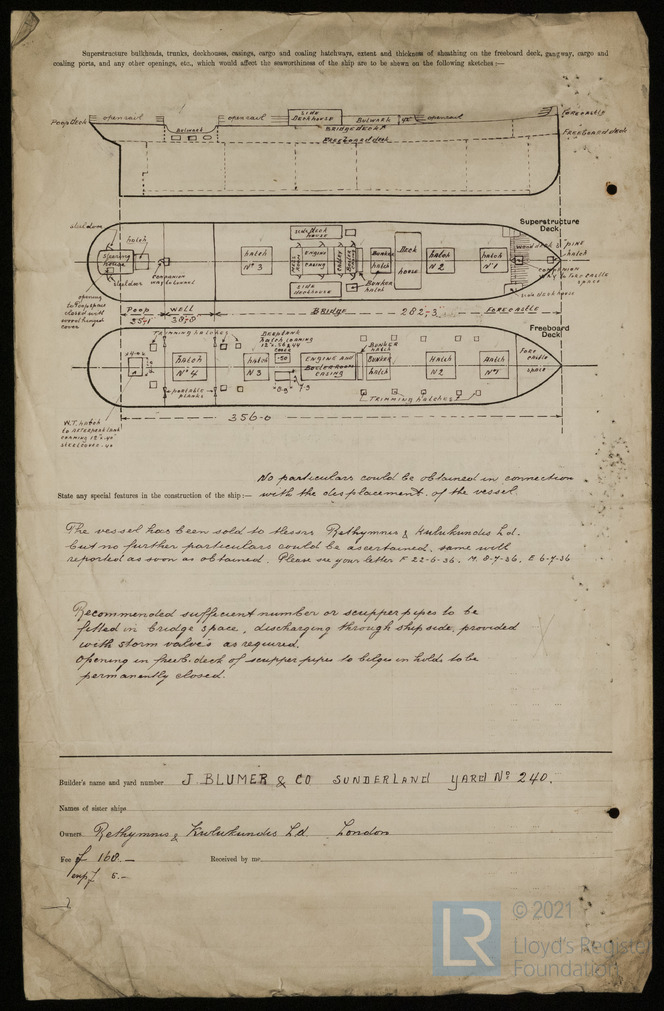 Superstructure bulkheads, trunks, deckhouses, casings, cargo and coaling hatchways, extent and thickness of sheathing on the freeboard deck, gangway, cargo and
coaling ports, and any other openings, etc., which would affect the seaworthiness of the ship are to be shewn on the following sketches :—
Poop deck
open rail
Bulwark
open rail
SIDE
DECKHOUSE
Bulwark
open rail
Forecastle
BRIDGE DECK
FREEBOARD deck
FREEBOARD deck
Superstructure
Deck
steel dom
hatch
Steering
house
steel dom
companion
way to tunnel
hatch
Nº 3
SIDE DECK
HOUSE
ENGINE
CASING
SIDE
DECKHOUSE
BUNKER
hatch
Bunker
hatch
Deck
house
hatch
Nº 2
hatch
Nº 1
wood deck PINE
hatch
companion
way to forecastle
space
side deck house
opening
to Poop space
closed with
wood hinged
cover
Poop
well
25-1
38-8
BRIDGE
282,3
FORECASTLE
Freeboard
Deck
TRIMMING hatches
Deeptank
hatch coaming
hatch
Nº 4
hatch
N 3
ENGINE AND
BOILER ROOM
CASING
BUNKER
HATCH
BUNKER
hatch
Hatch
N2
Hatch
Nº 1
Fore
castle
space
portable
planks
TRIMMING hatches
W.T. hatch
to afterpeak tank
coaming 12"x.40"
steel cover .40
356-0
State any special features in the construction of the ship :— No particulars could be obtained in connection
with the displacement of the vessel.
The vessel has been sold to Messrs Rethymnis & Kulukundis Ld.
but no further particulars could be ascertained, same will
reported as soon as obtained. Please see your letter F 22-6-36. M. 8-7-36. E 6-7-36
Recommended sufficient number or scupper pipes to be
fitted in bridge space, discharging through ship side, provided
with storm valves as required.
Opening in freeb. deck of scupper pipes to bilges in holds to be
permanently closed.
Builder's name and yard number J. BLUMER & CO SUNDERLAND YARD Nº 240.
Names of sister ships
Owners Rethymnis & Kulukundis Ld London
Fee £ 168.—
Received by me
exp £ 5.—
LR
© 2021
Lloyd's Register
Foundation